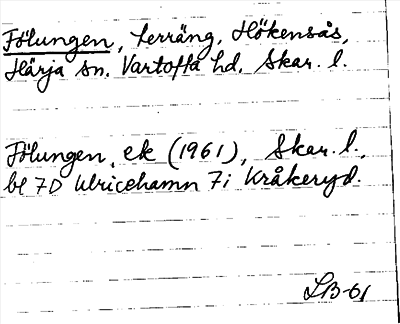 Fölungen, terräng, Hökensås,
Härja sn. Vartofta hd. Skar. l.
Fölungen, ek (1961), Skar. l.,
bl 7D Ulricehamn 7i Kråkeryd.
LB-61